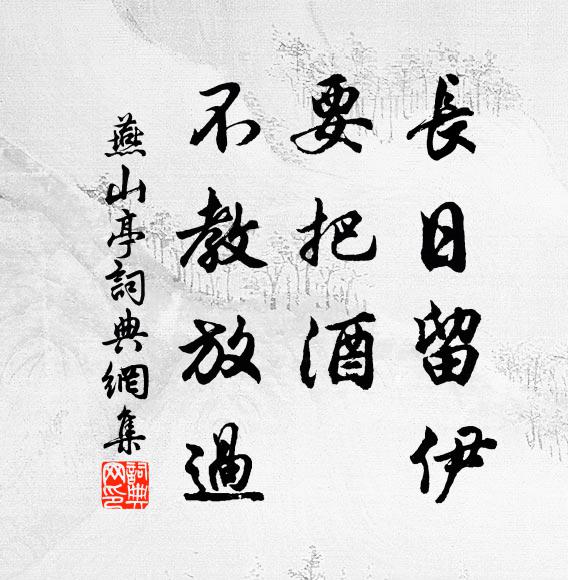 長日留伊
要把酒
不教放過
燕山亭詞典網集
詞典
网印